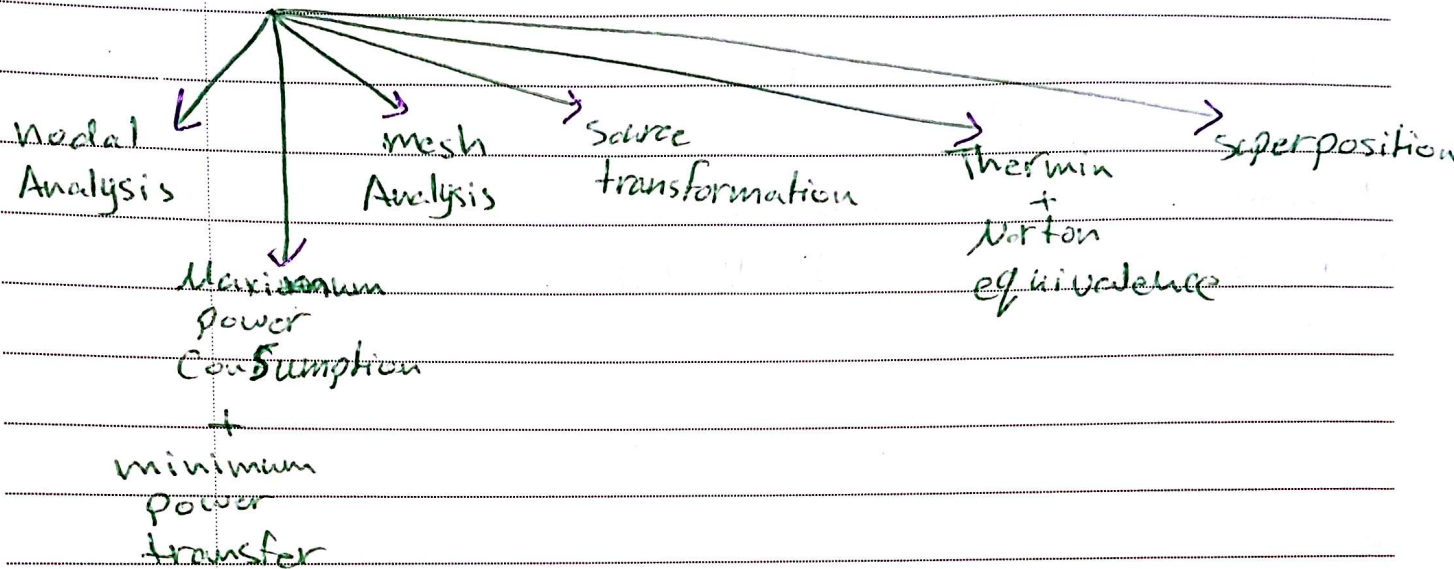 nodal
Analysis
mesh
Analysis
Source
transformation
Thermin
+
Norton
equivalence
superposition
Maximum
power
Consumption
+
minimum
power
transfer